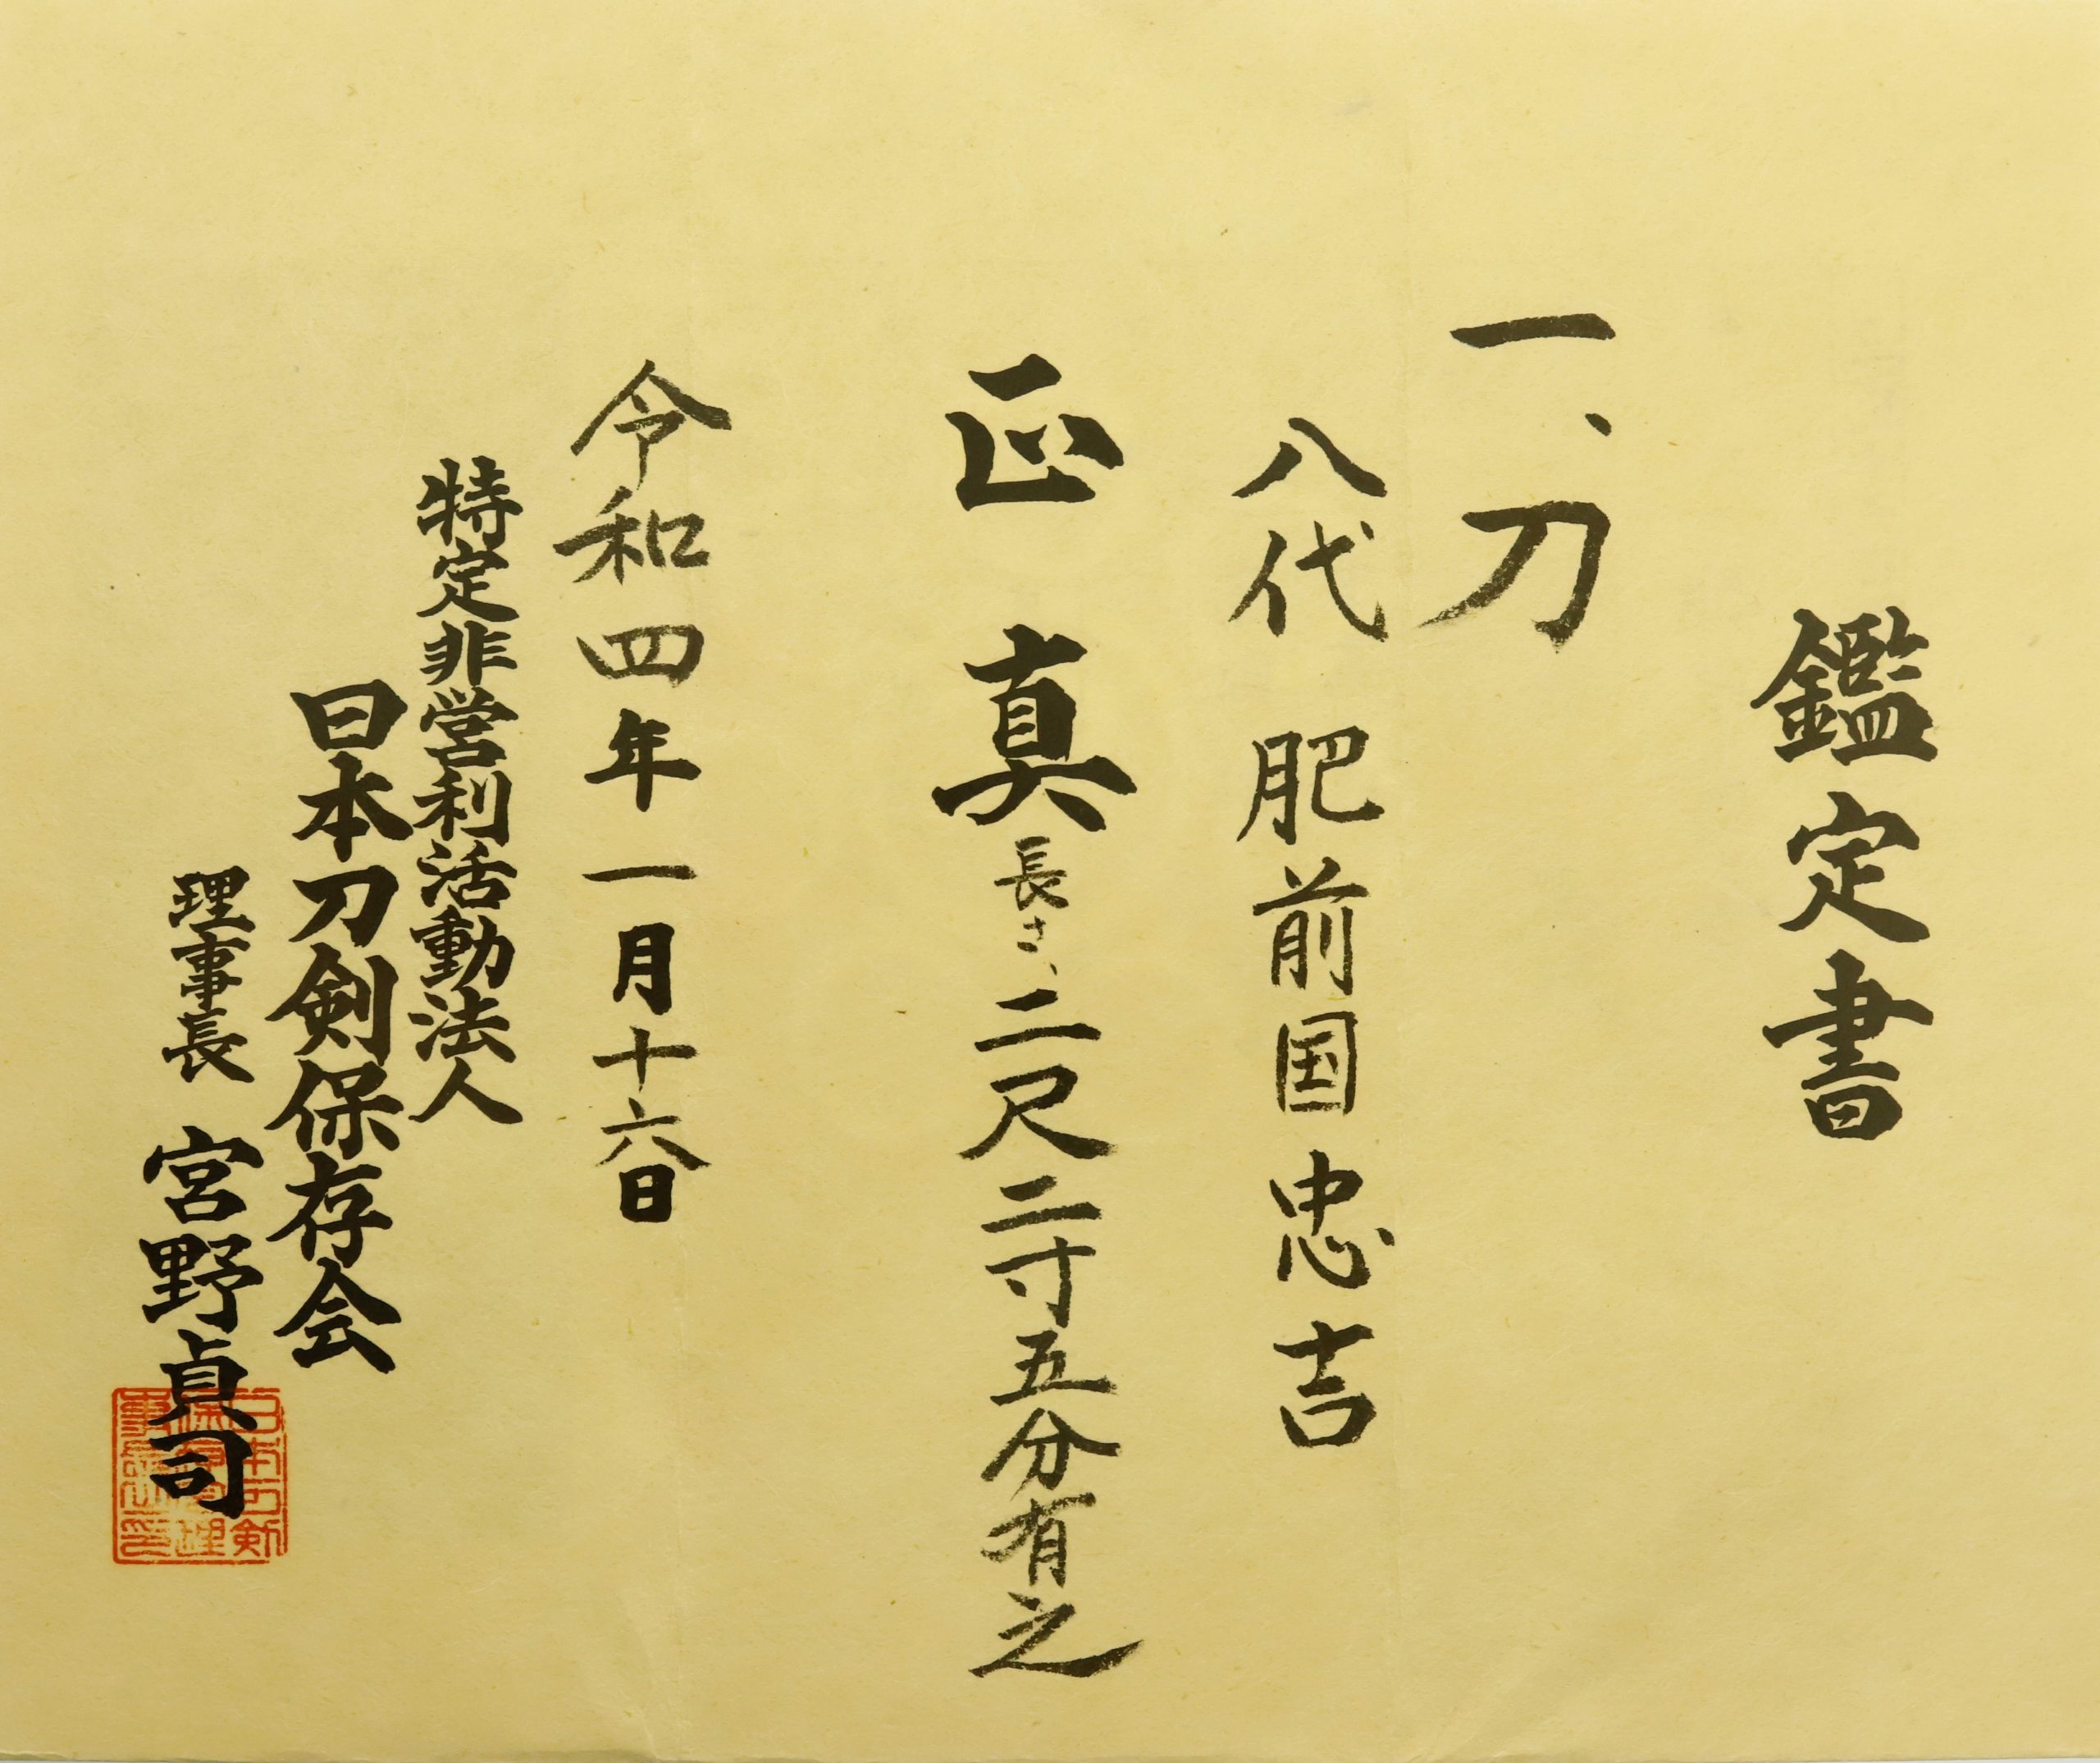 鑑定書
一、刀
八代 肥前国忠吉
正真 長さ、二尺二寸五分有之
令和四年一月十六日
特定非営利活動法人
日本刀剣保存会
理事長 宮野貞司